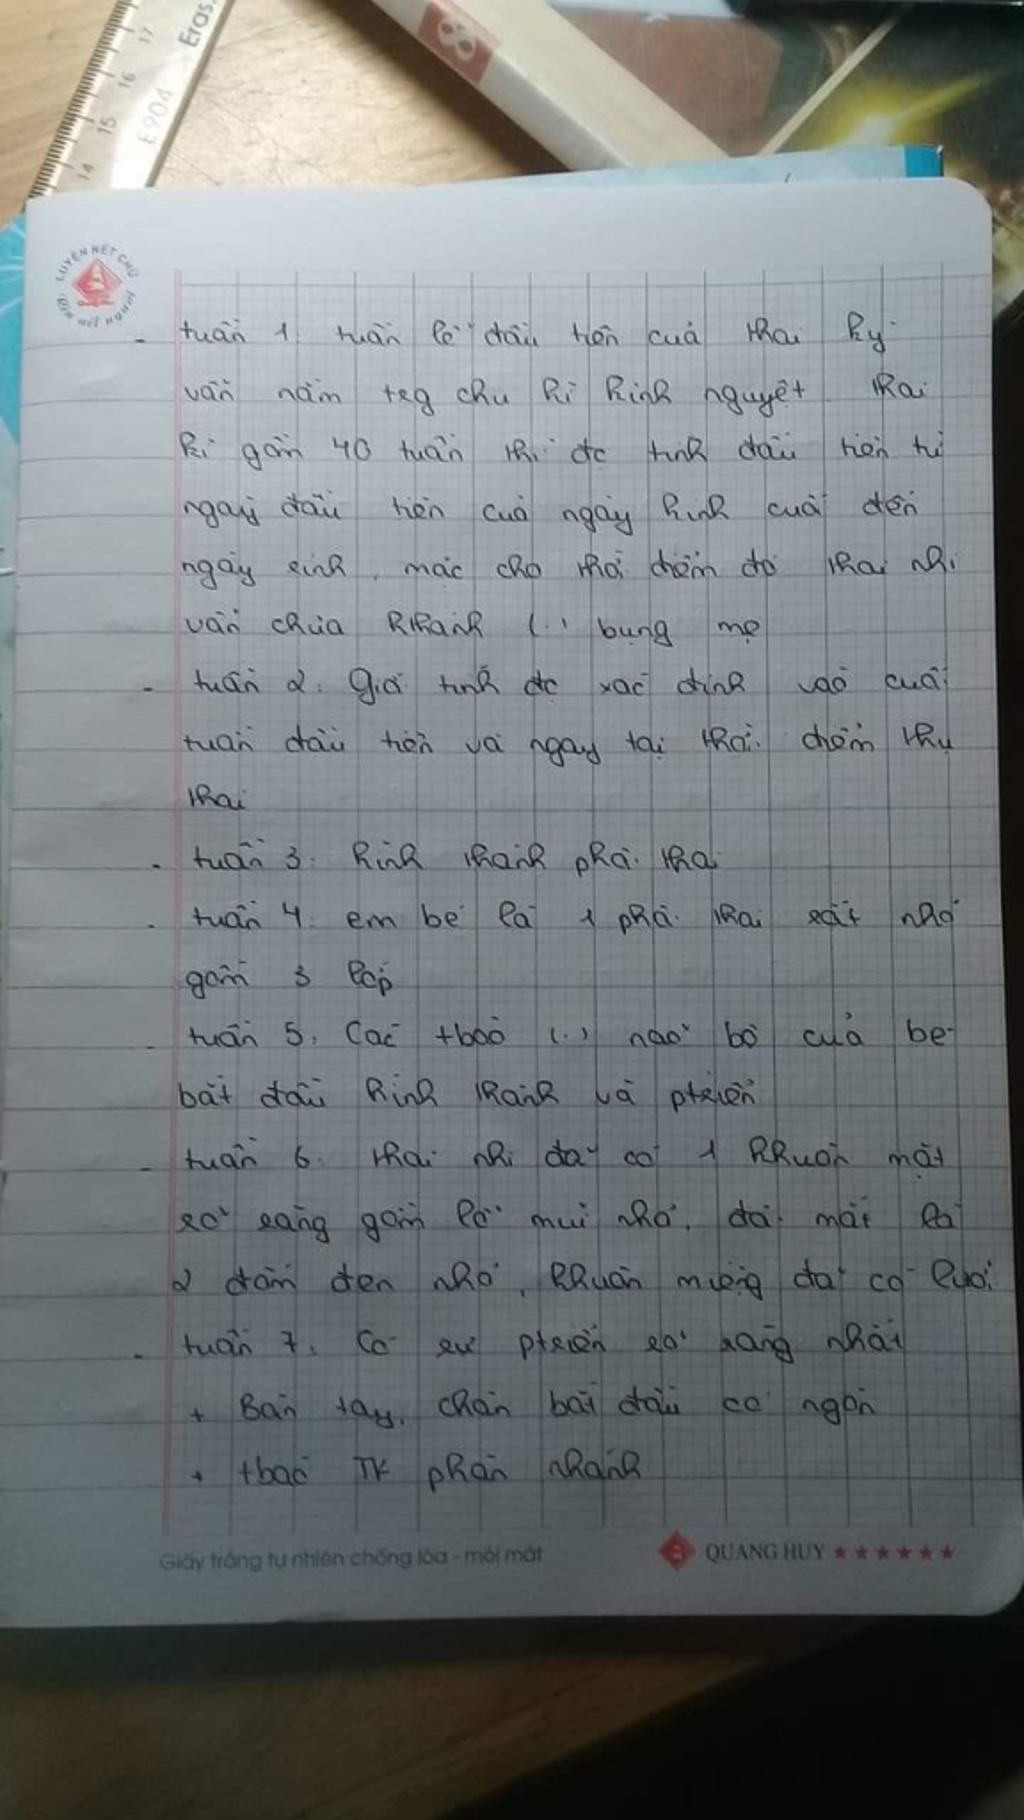 17
16
15
14
Eras.
E904
LUYỆN NÉT CHỮ
Rèn nết người
- tuần 1: tuần lễ đầu tiên của thai kỳ
vẫn nằm trg chu kì kinh nguyệt. Thai
kì gồm 40 tuần thì đc tính đầu tiên từ
ngày đầu tiên của ngày kinh cuối đến
ngày sinh, mặc cho thời điểm đó thai nhi
vẫn chưa hthành (..) bụng mẹ
- tuần 2: Giới tính đc xác định vào cuối
tuần đầu tiên và ngay tại thời điểm thụ
thai
- tuần 3: hình thành phôi thai
- tuần 4: em bé là 1 phôi thai rất nhỏ
gồm 3 lớp
- tuần 5: Các tbào (..) não bộ của bé
bắt đầu hình thành và ptriển
- tuần 6: thai nhi đã có 1 khuôn mặt
rõ ràng gồm lỗ mũi nhỏ, đôi mắt là
2 đốm đen nhỏ, khuôn miệng đã có lưỡi
- tuần 7: Có sự ptriển rõ ràng nhất
+ Bàn tay, chân bắt đầu có ngón
+ tbào TK phân nhánh
Giấy trắng tự nhiên chống lóa - mỏi mắt
QUANG HUY ★★★★★★